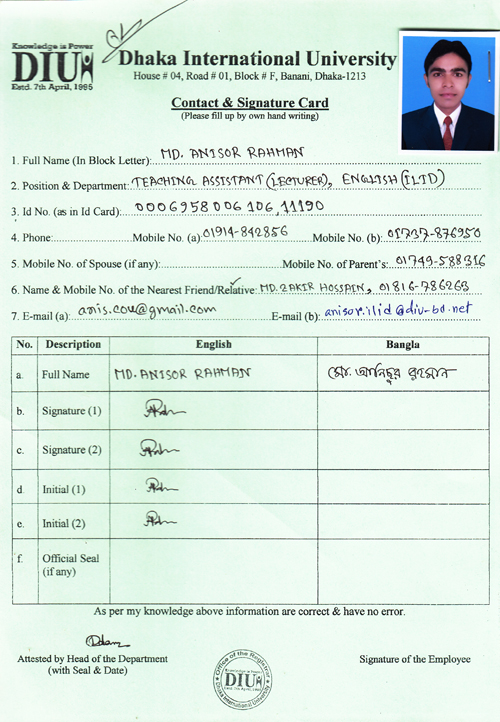 Knowledge is Power
DIU
Estd. 7th April, 1995
Dhaka International University
House # 04, Road # 01, Block # F, Banani, Dhaka-1213
Contact & Signature Card
(Please fill up by own hand writing)
1. Full Name (In Block Letter): MD. ANISOR RAHMAN
2. Position & Department: TEACHING ASSISTANT (LECTURER), ENGLISH (ILID)
3. Id No. (as in Id Card): 0006958006106,11190
4. Phone: Mobile No. (a): 01914-842856 Mobile No. (b): 01737-876950
5. Mobile No. of Spouse (if any): Mobile No. of Parent's: 01749-588316
6. Name & Mobile No. of the Nearest Friend/Relative: MD. ZAKIR HOSSAIN, 01816-786263
7. E-mail (a): anis.cou@gmail.com E-mail (b): anisor.ilid@diu-bd.net
No. Description English Bangla
a. Full Name MD. ANISOR RAHMAN মো. আনিছুর রহমান
b. Signature (1)
c. Signature (2)
d. Initial (1)
e. Initial (2)
f. Official Seal
(if any)
As per my knowledge above information are correct & have no error.
Attested by Head of the Department
(with Seal & Date)
Signature of the Employee
Office of the Registrar
Knowledge is Power
DIU
Estd. 7th April, 1995
Dhaka International University